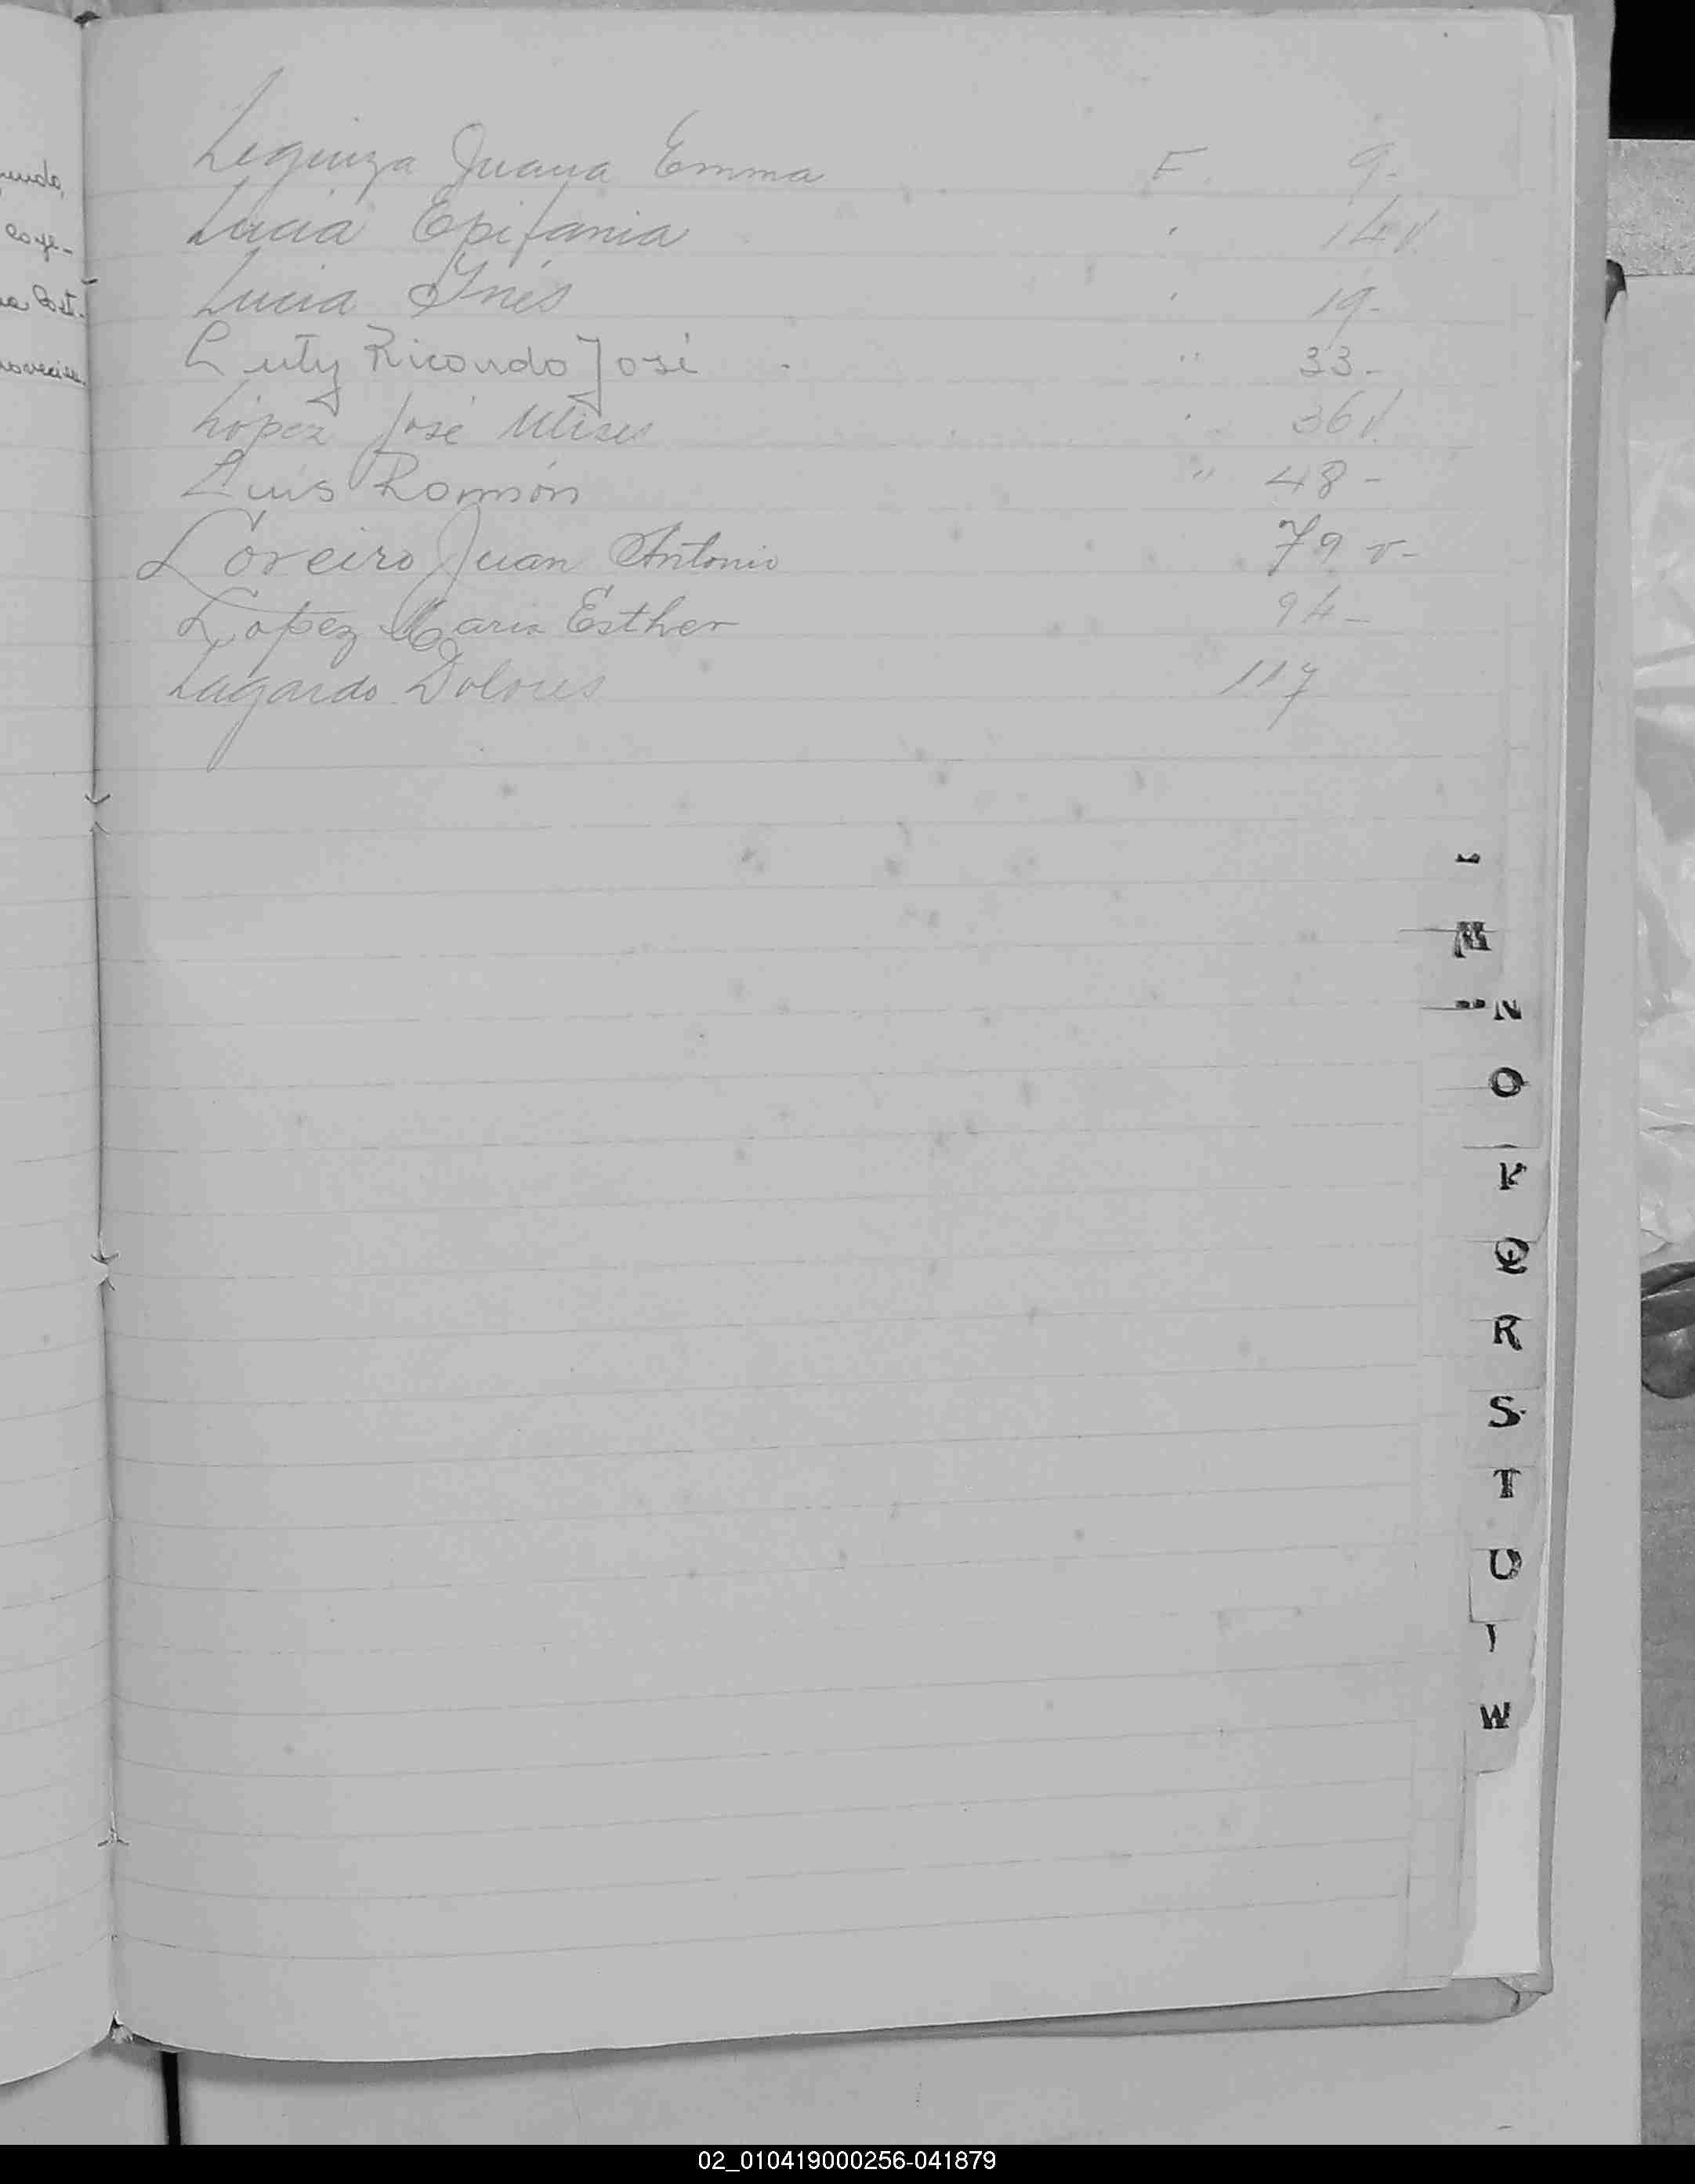 Leguiza Juana Emma F. 9-
Lucia Epifania " 14 v.
Lucia Ynés " 19-
Luty Ricardo José " 33-
López José Ulises " 36 v.
Luis Ramón " 48-
Loreiro Juan Antonio 79 v-
Lopez Maria Esther 94-
Lugardo Dolores 117
L
M
N
O
P
Q
R
S
T
U
W
02_010419000256-041879